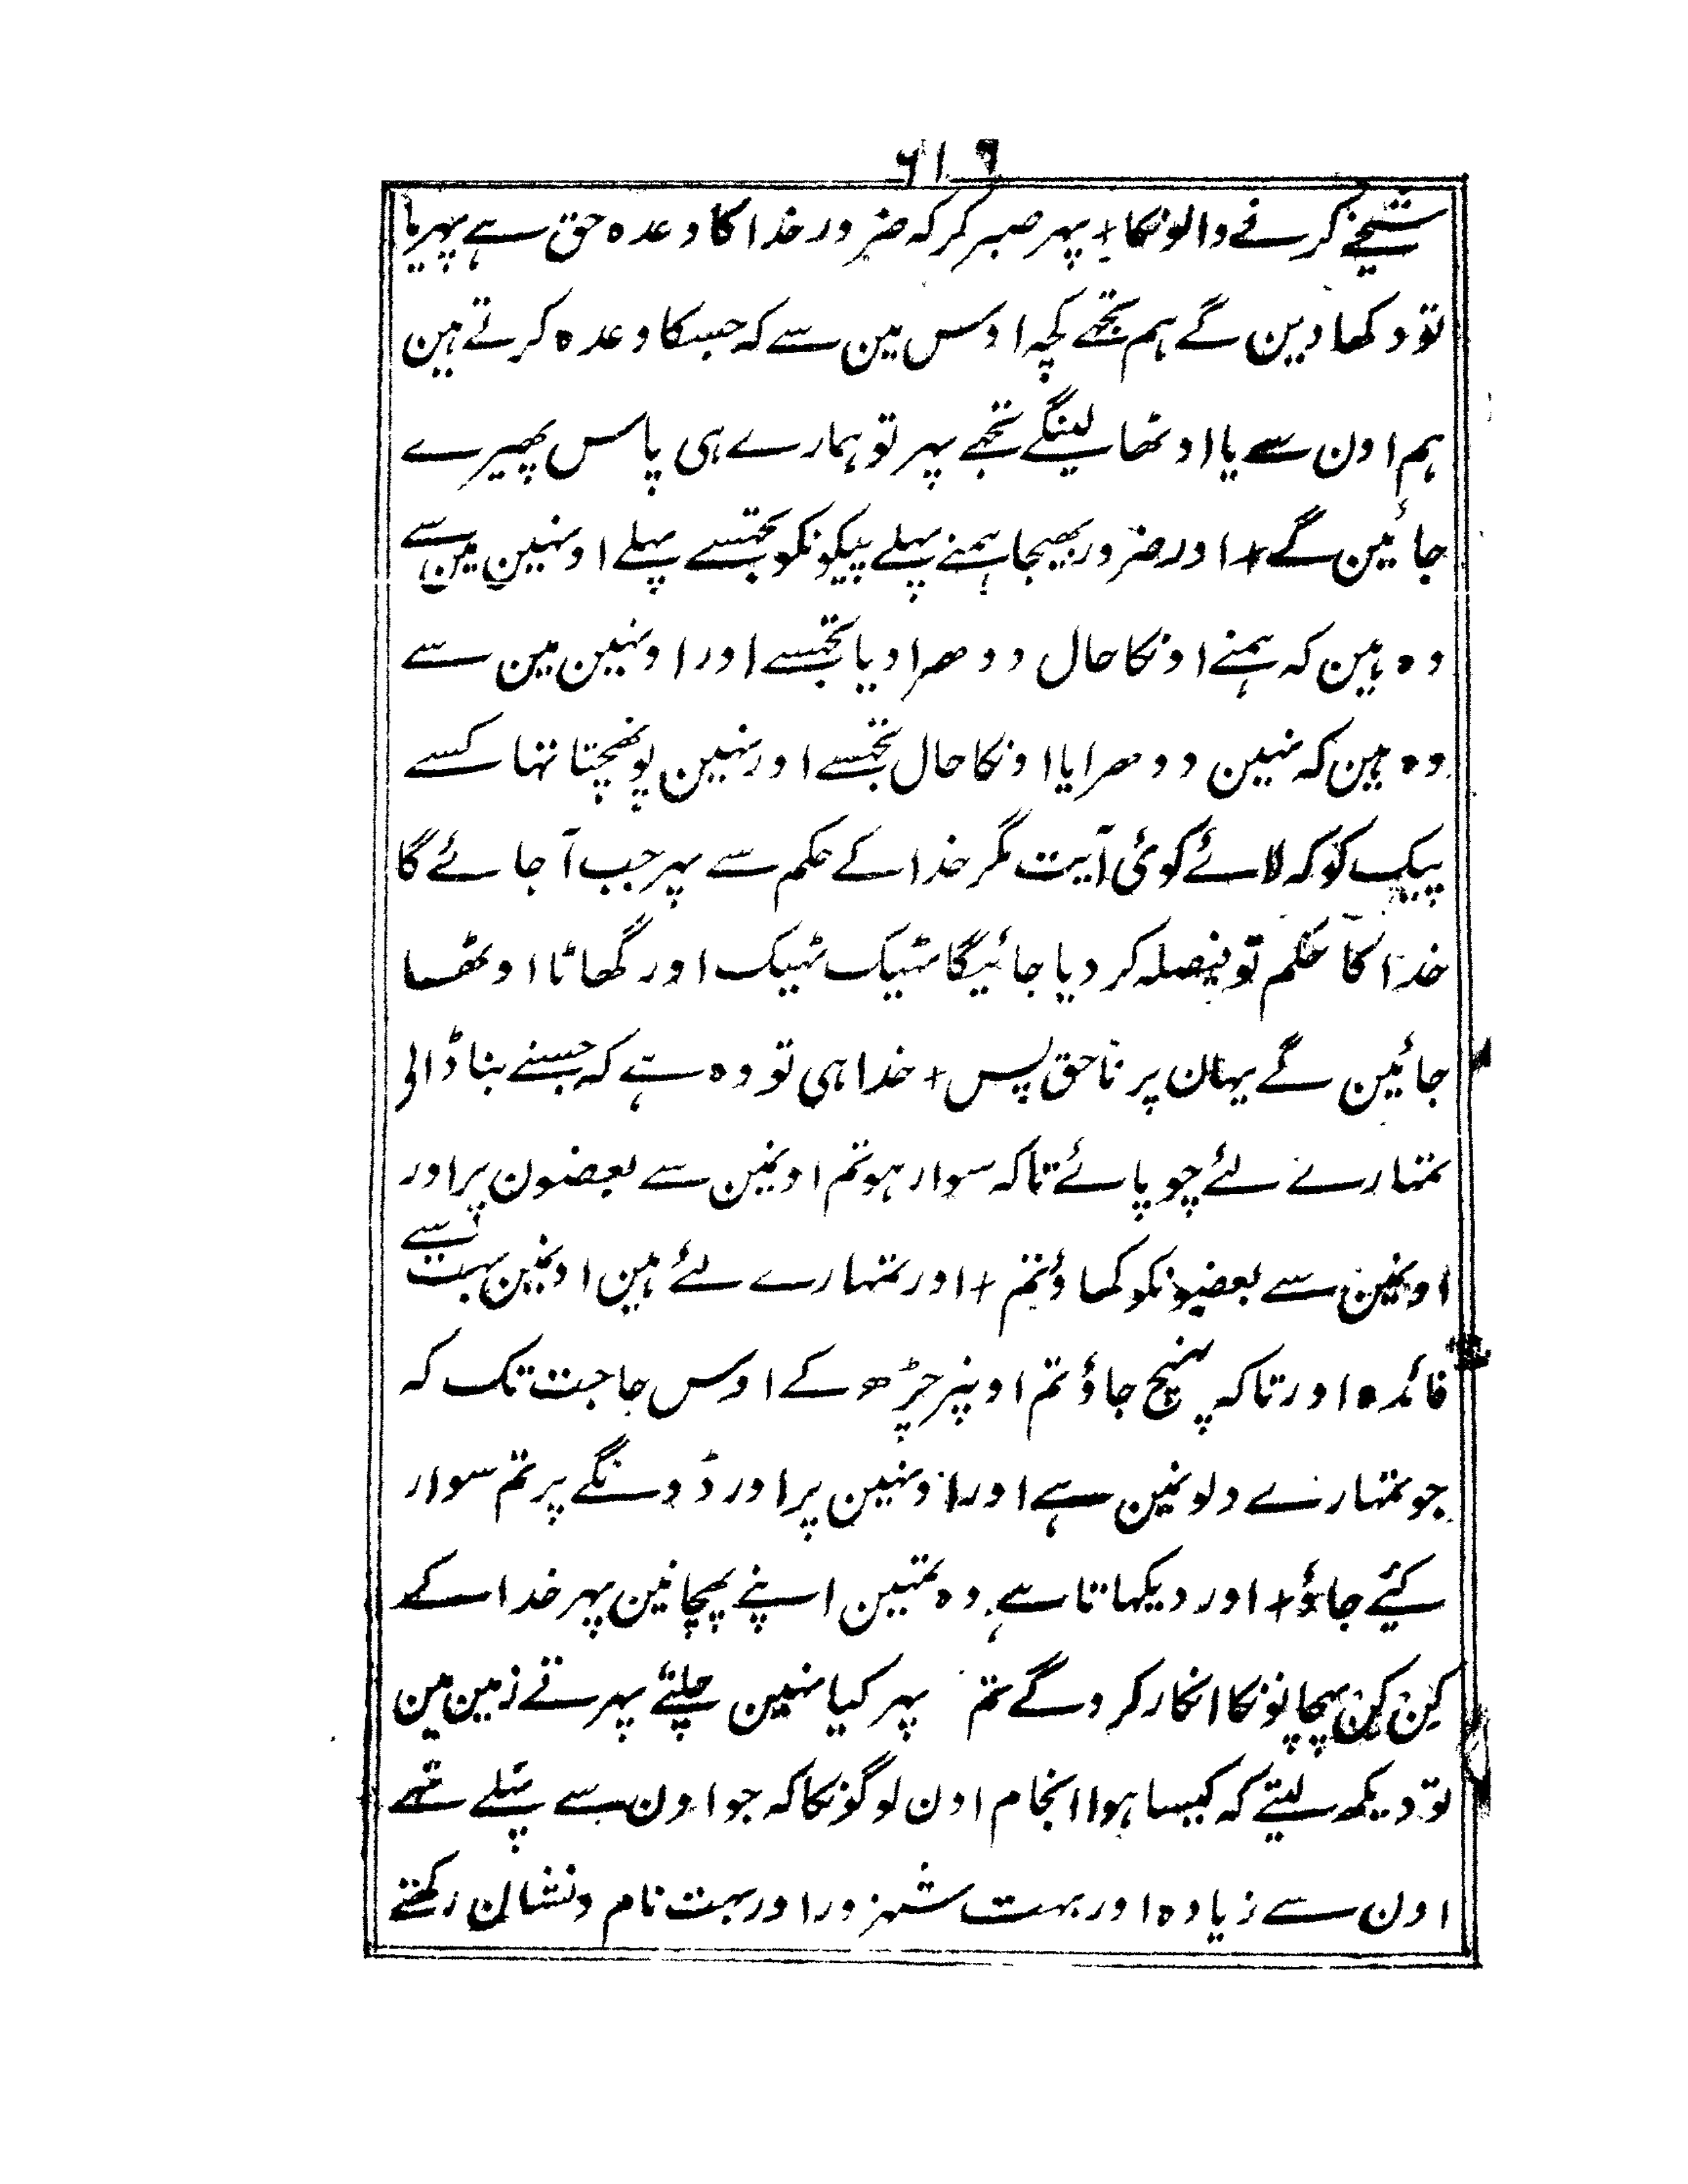 ۶۱۶
شیخے کرنے والونکا + پہر صبر کر کہ ضرور خدا کا وعدہ حق ہے پہر یا
تو دکھا دین گے ہم تجھے کچہ اوس مین سے کہ جسکا وعدہ کرتے ہین
ہم اون سے یا اوٹھا لینگے تجھے پہر تو ہمارے ہی پاس پھیرے
جائین گے + اور ضرور بھیجا ہمنے پہلے پیکونکو تجھسے پہلے اونہین مین سے
وہ ہین کہ ہمنے اونکا حال دوھرا دیا تجھسے اور اونہین مین سے
وہ ہین کہ نہین دوھرایا اونکا حال تجھسے اور نہین پونھچتا تہا کسے
پیک کو کہ لائے کوئی آیت مگر خدا کے حکم سے پہر جب آ جائے گا
خدا کا حکم تو فیصلہ کر دیا جائیگا ٹہیک ٹہیک اور گھاٹا اوٹھا
جائین گے یہان پر ناحق پس + خدا ہی تو وہ ہے کہ جسنے بنا ڈالی
تمہارے لئے چوپائے تاکہ سوار ہو تم اونمین سے بعضون پر اور
اونمین سے بعضونکو کھاؤ تم + اور تمہارے لئے ہین اونمین بہت سے
فائدہ اور تاکہ پہنچ جاؤ تم اونپر چڑھ کے اوس حاجت تک کہ
جو تمہارے دلونمین ہے اور اونہین پر اور ڈونگے پر تم سوار
کئے جاؤ + اور دیکہاتا ہے وہ تمہین اپنے پہچانین پہر خدا کے
کن کن پہچانونکا انکار کرو گے تم پہر کیا نہین چلتے پہرتے زمین مین
تو دیکھ لیتے کہ کیسا ہوا انجام اون لوگونکا کہ جو اون سے پہلے تھے
اون سے زیادہ اور بہت شہزور اور بہت نام و نشان رکھتے